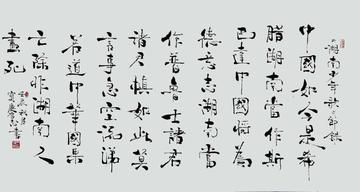 湖南少年歌節錄
中國如今是希
腊湖南當作斯
巴達中國將為
德意志湖南當
作普魯士諸君
諸君慎如此莫
言事急空流涕
若道中華國果
亡除非湖南人
盡死